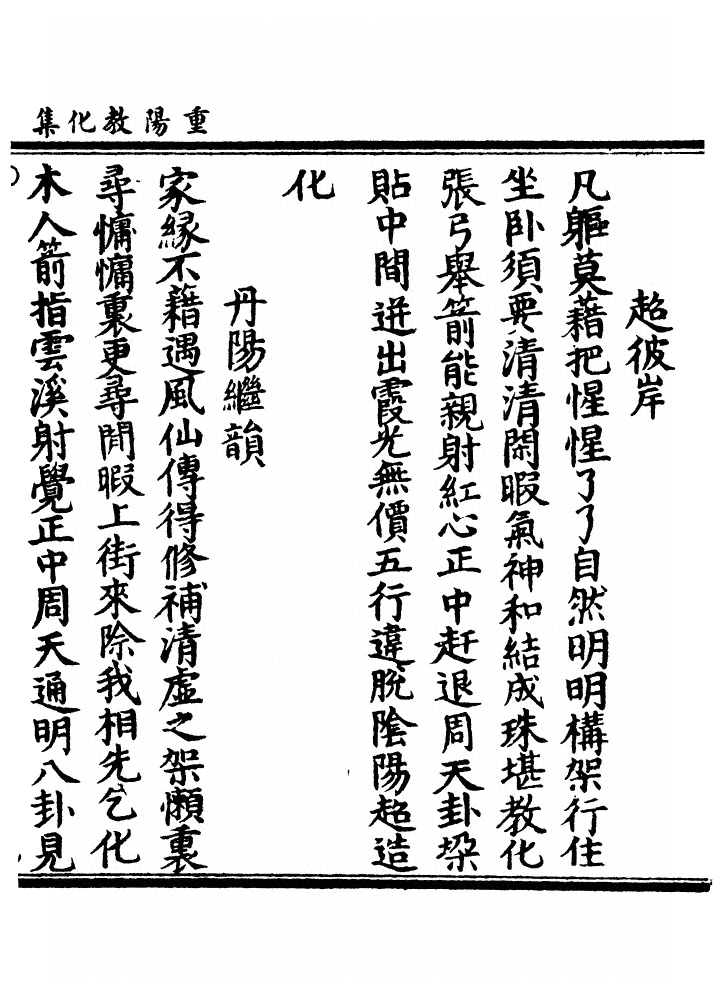 重陽教化集
超彼岸
凡軀莫藉把惺惺了了自然明明構架行住
坐卧須要清清閑暇氣神和結成珠堪教化
張弓舉箭能親射紅心正中赶退周天卦垜
貼中間迸出霞光無價五行違脫陰陽超造
化
丹陽繼韻
家緣不藉遇風仙傳得修補清虛之架懶裏
尋慵慵裏更尋閒暇上街來除我相先乞化
木人箭指雲溪射覺正中周天通明八卦見